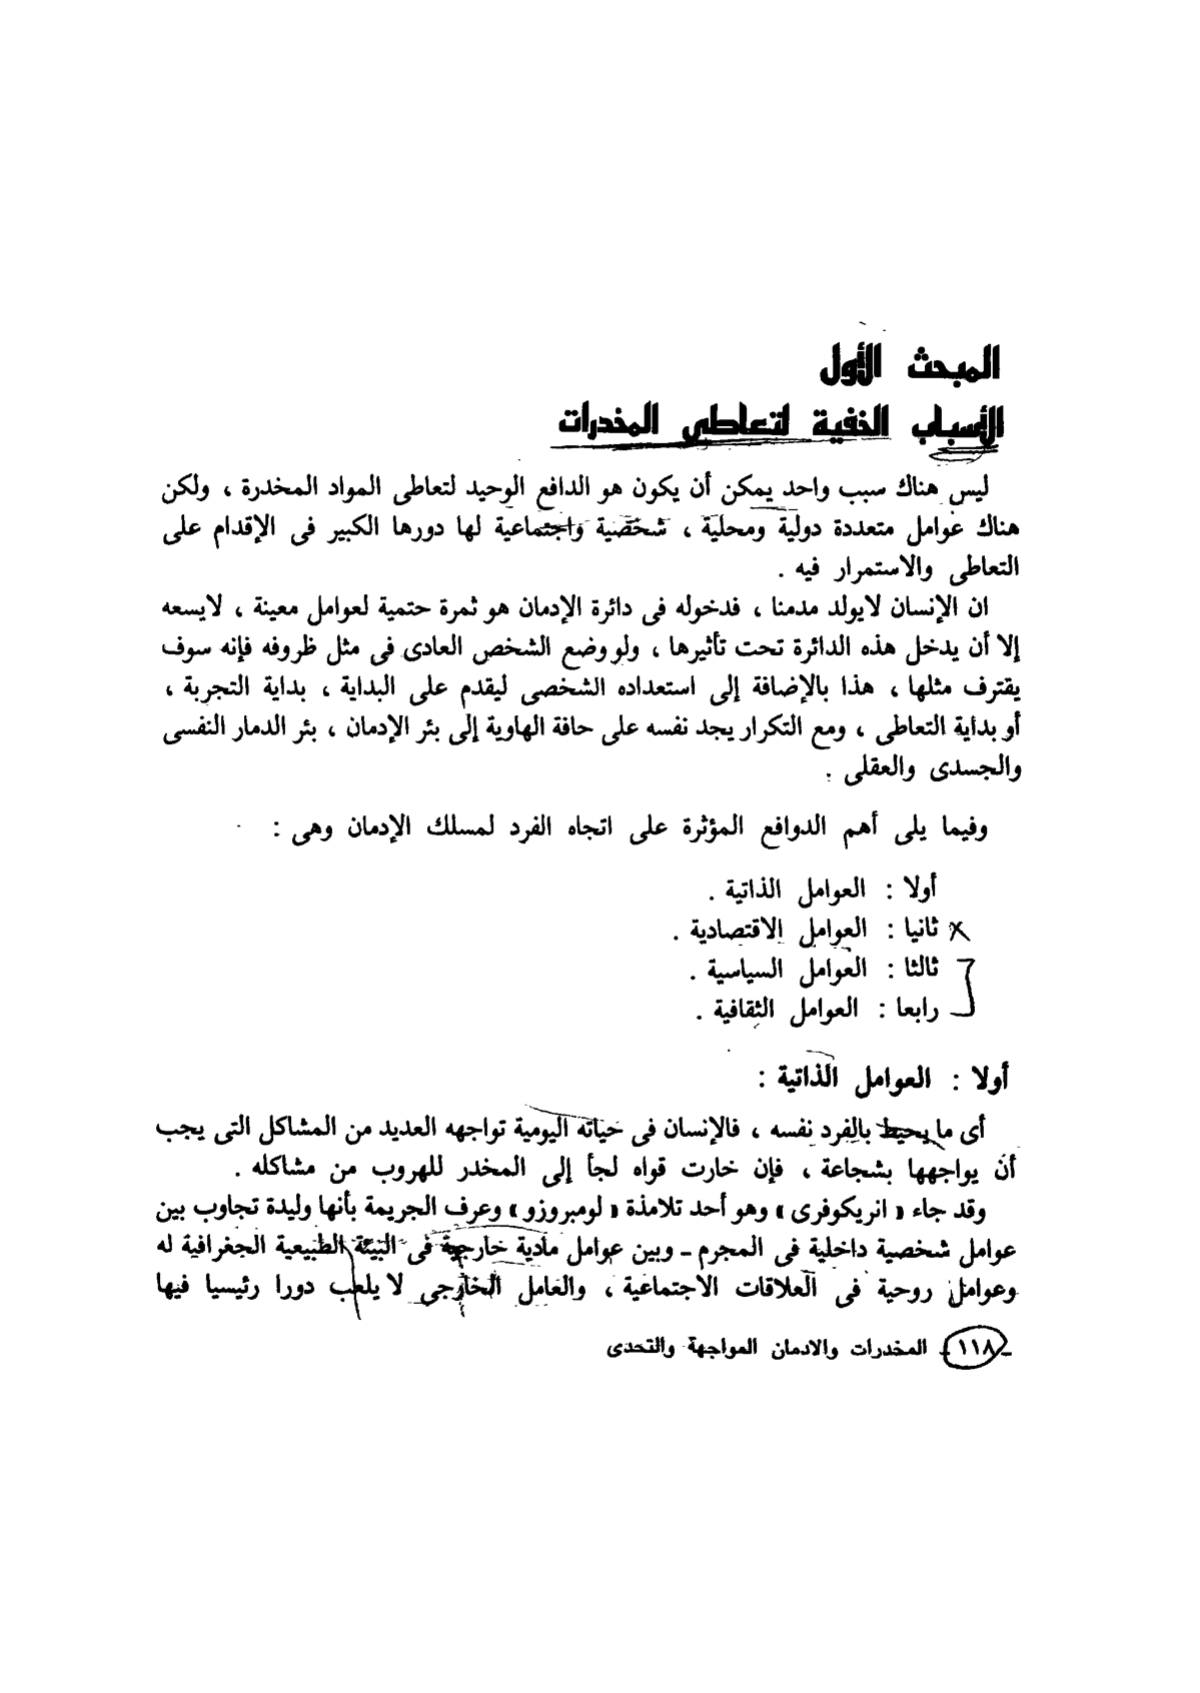 المبحث الأول
الأسباب الخفية لتعاطى المخدرات
ليس هناك سبب واحد يمكن أن يكون هو الدافع الوحيد لتعاطى المواد المخدرة ، ولكن
هناك عوامل متعددة دولية ومحلية ، شخصية واجتماعية لها دورها الكبير فى الإقدام على
التعاطى والاستمرار فيه .
ان الإنسان لايولد مدمنا ، فدخوله فى دائرة الإدمان هو ثمرة حتمية لعوامل معينة ، لايسعه
إلا أن يدخل هذه الدائرة تحت تأثيرها ، ولو وضع الشخص العادى فى مثل ظروفه فإنه سوف
يقترف مثلها ، هذا بالإضافة إلى استعداده الشخصى ليقدم على البداية ، بداية التجربة ،
أو بداية التعاطى ، ومع التكرار يجد نفسه على حافة الهاوية إلى بئر الإدمان ، بئر الدمار النفسى
والجسدى والعقلى .
وفيما يلى أهم الدوافع المؤثرة على اتجاه الفرد لمسلك الإدمان وهى :
أولا : العوامل الذاتية .
ثانيا : العوامل الاقتصادية .
ثالثا : العوامل السياسية .
رابعا : العوامل الثقافية .
أولا : العوامل الذاتية :
أى ما يحيط بالفرد نفسه ، فالإنسان فى حياته اليومية تواجهه العديد من المشاكل التى يجب
أن يواجهها بشجاعة ، فإن خارت قواه لجأ إلى المخدر للهروب من مشاكله .
وقد جاء « انريكوفرى » وهو أحد تلامذة « لومبروزو » وعرف الجريمة بأنها وليدة تجاوب بين
عوامل شخصية داخلية فى المجرم ـ وبين عوامل مادية خارجية فى البيئة الطبيعية الجغرافية له
وعوامل روحية فى العلاقات الاجتماعية ، والعامل الخارجى لا يلعب دورا رئيسيا فيها
ـ ١١٨ ـ المخدرات والادمان المواجهة والتحدى